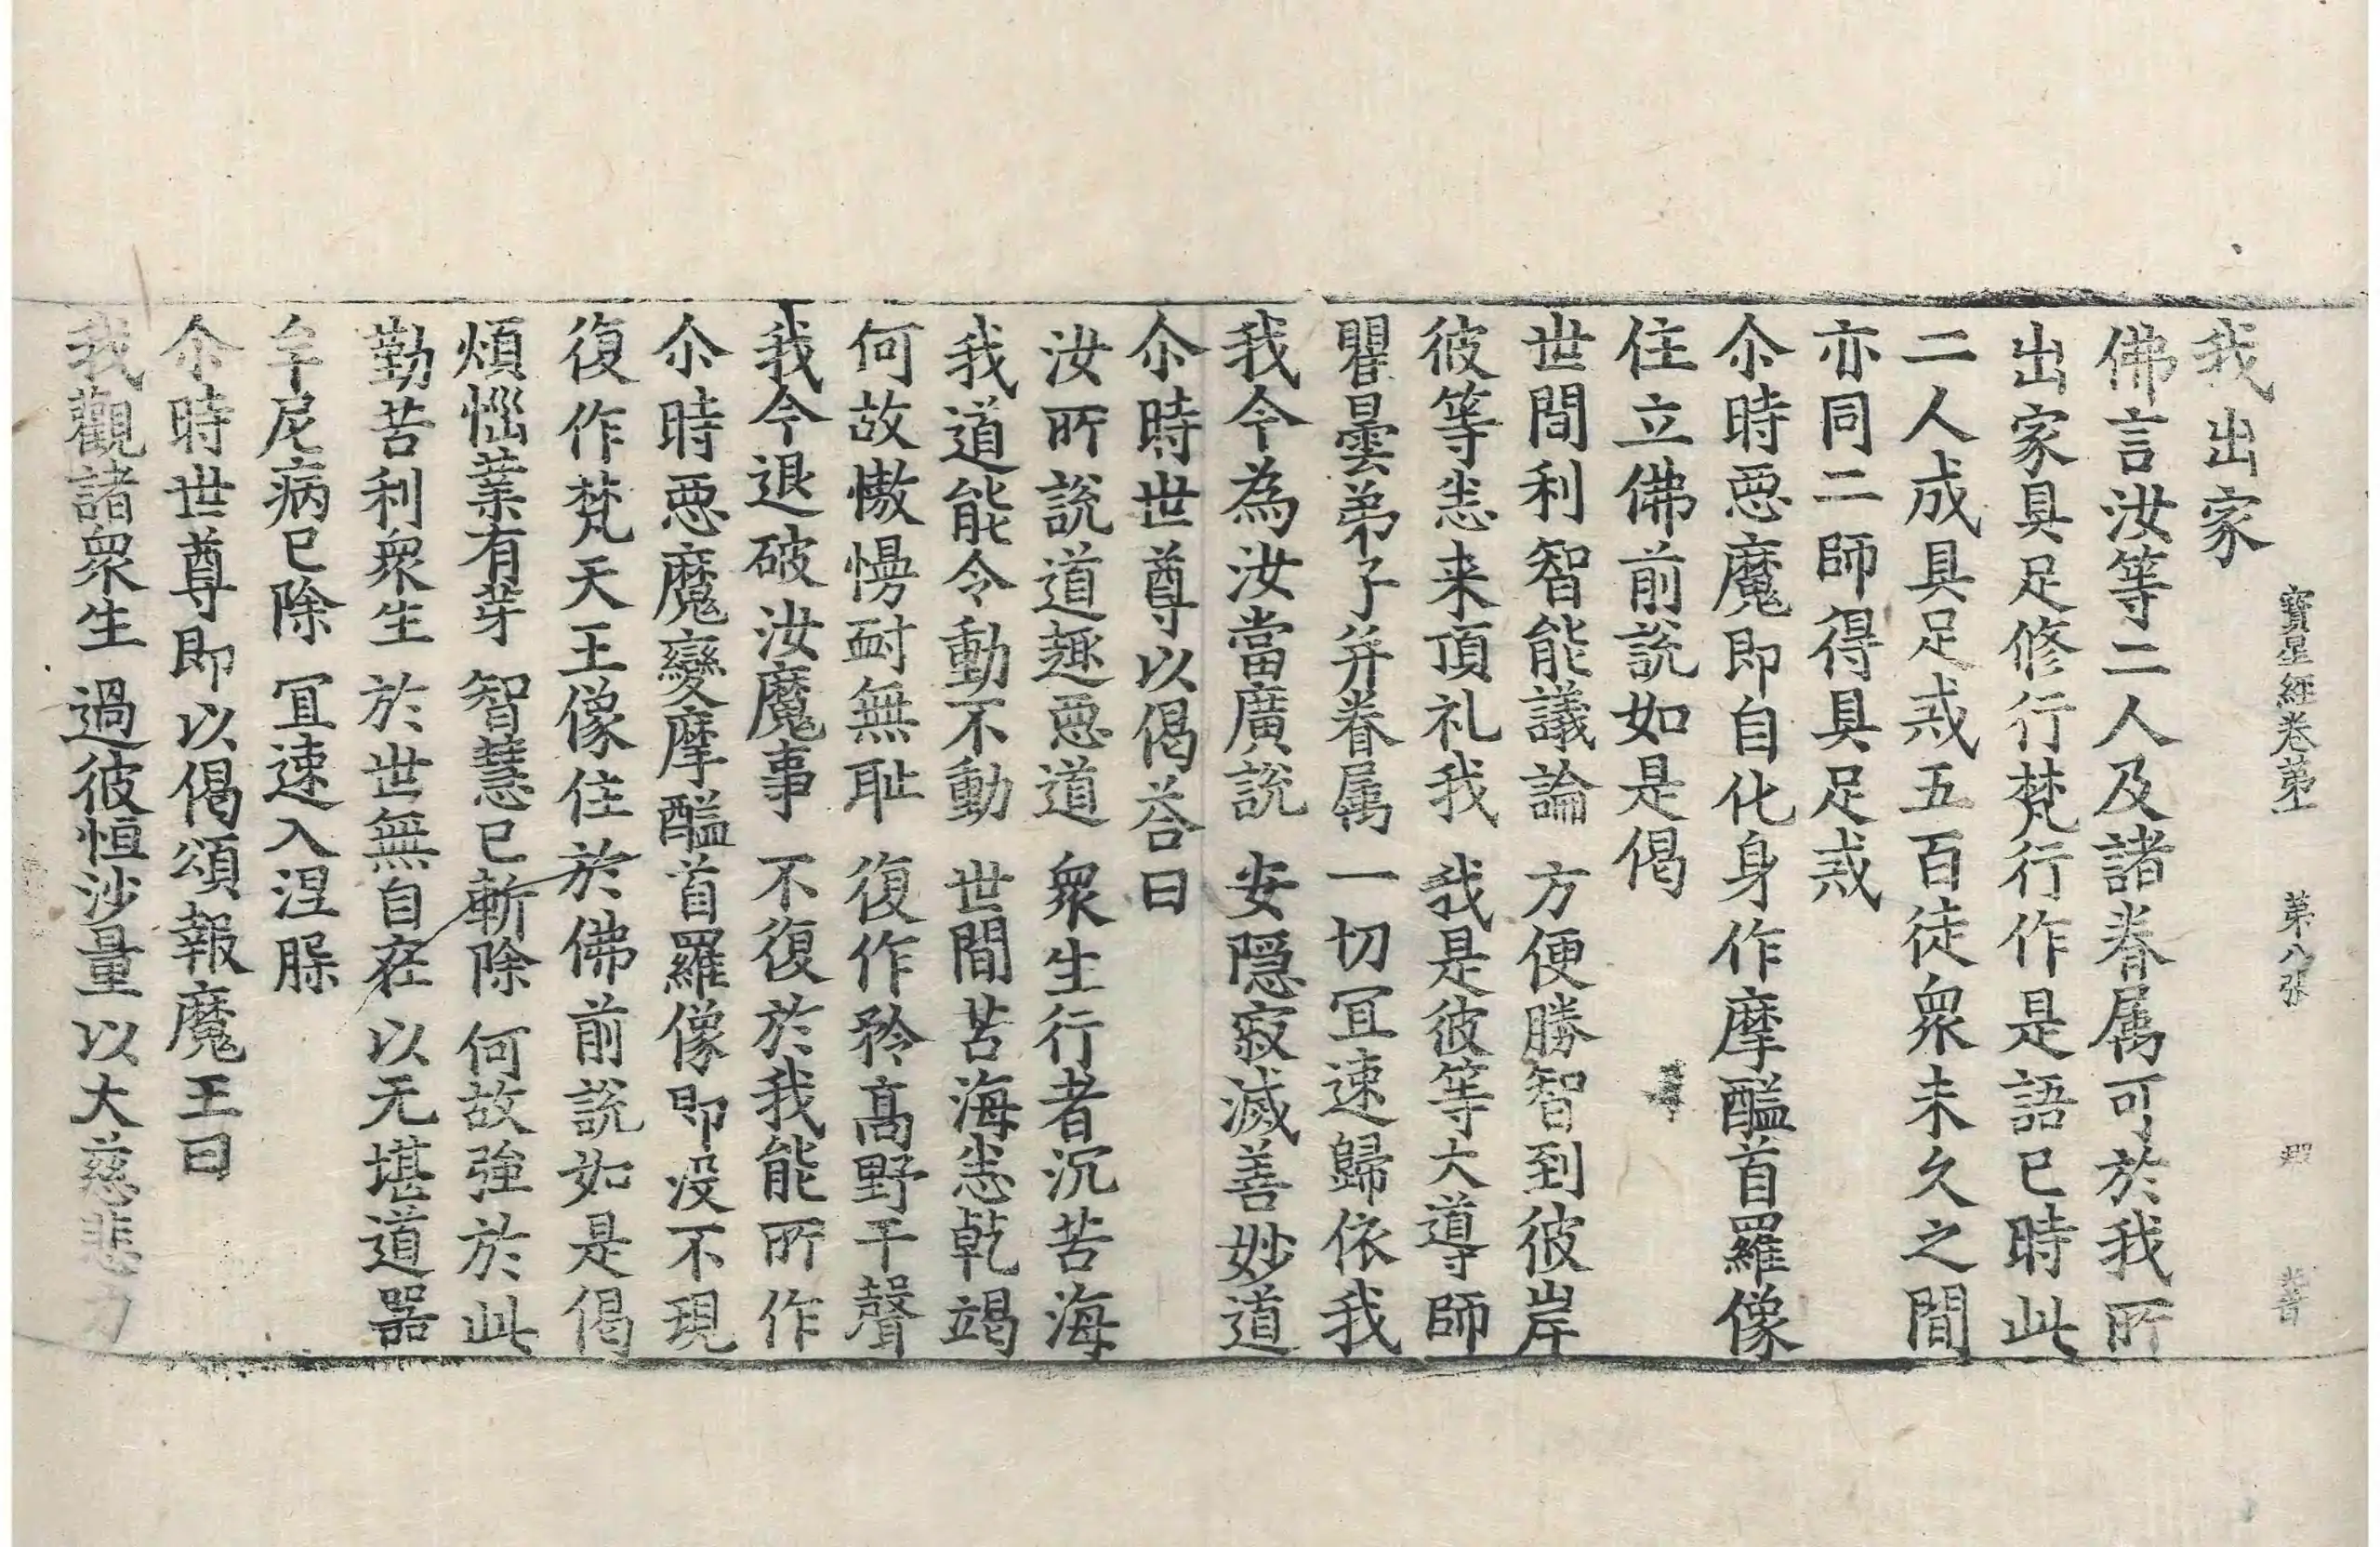 寶星經卷第一 第八張
我出家
佛言汝等二人及諸眷属可於我所
出家具足修行梵行作是語已時此
二人成具足戒五百徒衆未久之間
亦同二師得具足戒
尒時惡魔即自化身作摩醯首羅像
住立佛前說如是偈
世間利智能議論 方便勝智到彼岸
彼等悉来頂礼我 我是彼等大導師
瞿曇弟子并眷属 一切冝速歸依我
我今為汝當廣說 安隱寂滅善妙道
尒時世尊以偈荅曰
汝所說道趣惡道 衆生行者沉苦海
我道能令動不動 世間苦海悉乾竭
何故慠慢耐無耻 復作矜高野干聲
我今退破汝魔事 不復於我能所作
尒時惡魔變摩醯首羅像即没不現
復作梵天王像住於佛前說如是偈
煩惱業有芽 智慧已斬除 何故強於此
勤苦利衆生 於世無自在 以无堪道器
牟尼病已除 冝速入涅槃
尒時世尊即以偈頌報魔王曰
我觀諸衆生 過彼恒沙量 以大慈悲力